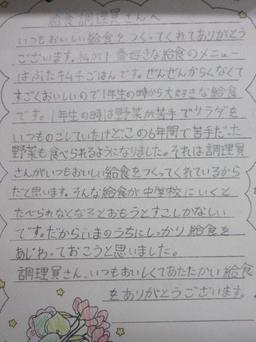 給食調理員さんへ
いつもおいしい給食をつくってくれてありがとう
ございます。私が1番好きな給食のメニュー
はぶたキムチごはんです。ぜんぜんからくなくて
すごくおいしいので1年生の時から大好きな給食
です。1年生の時は野菜が苦手でサラダを
いつものこしていたけどこの6年間で苦手だった
野菜も食べられるようになりました。それは調理員
さんがいつもおいしい給食をつくってくれているから
だと思います。そんな給食が中学校にいくと
たべられなくなるとおもうとすこしかなしい
です。だからいまのうちにしっかり給食を
あじわっておこうと思いました。
調理員さん、いつもおいしくてあたたかい給食
をありがとうございます。